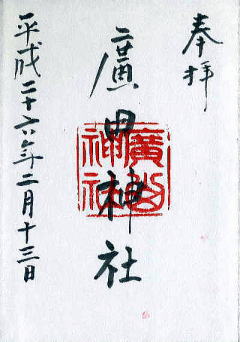 奉拝
廣田神社
廣田神社
平成二十六年二月十三日